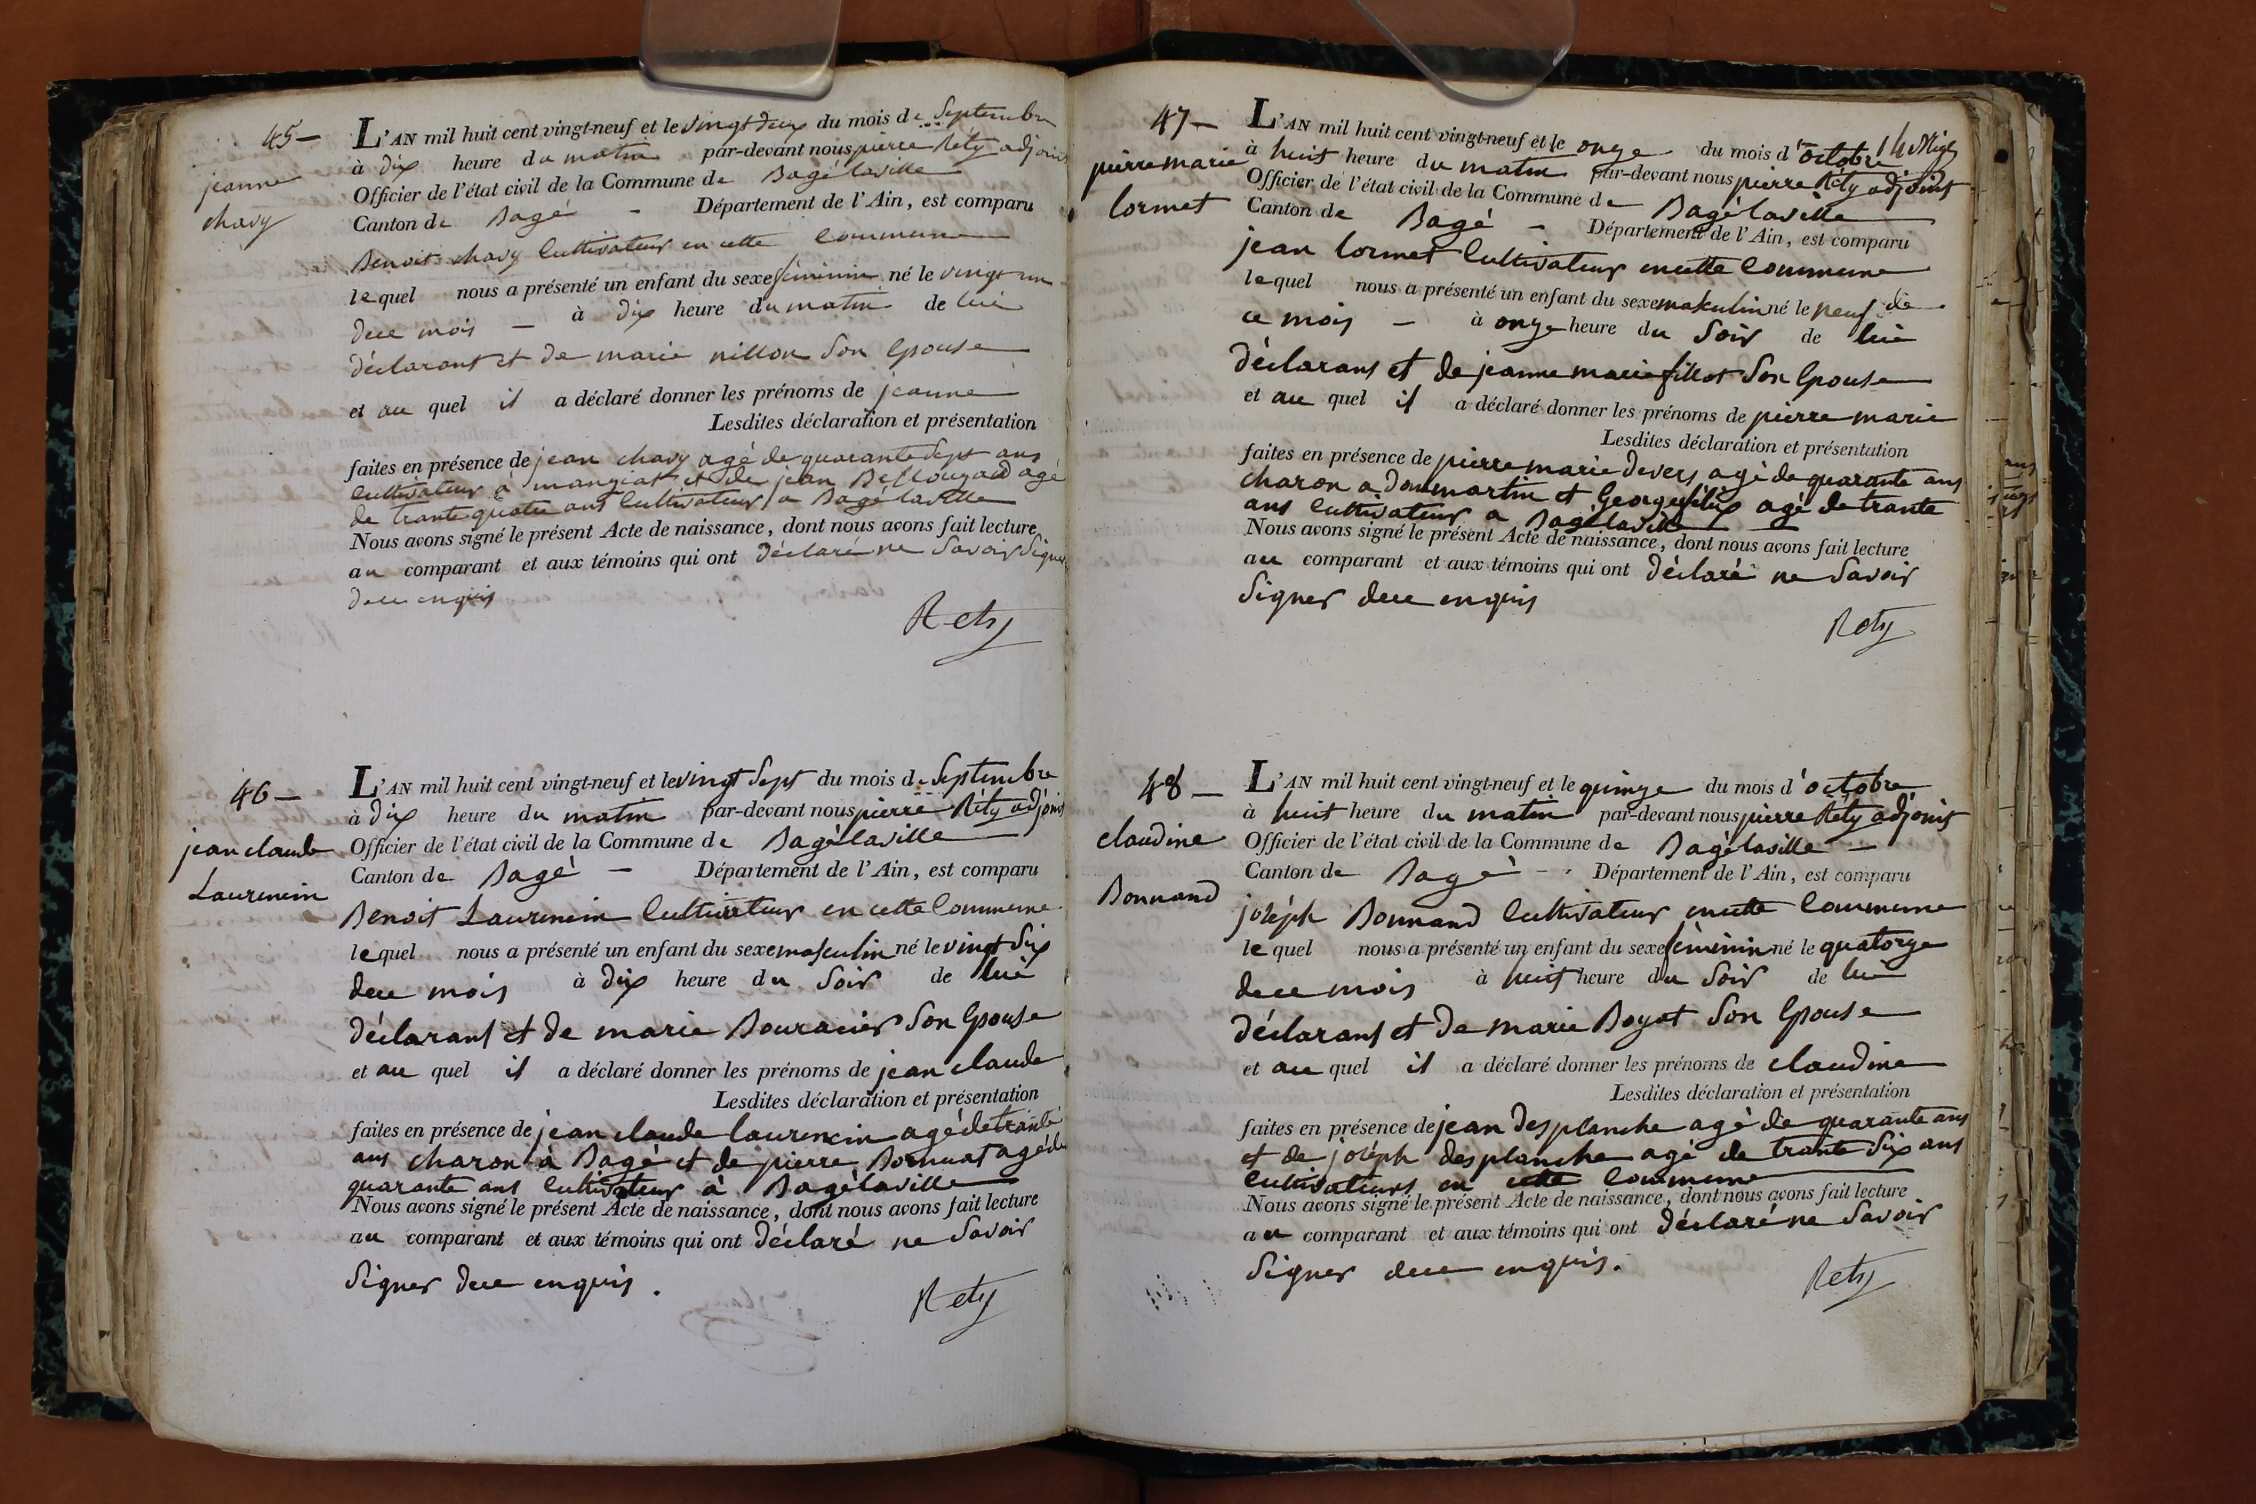 45 —
jeanne
chavy
L'AN mil huit cent vingt-neuf et le vingt deux du mois de Septembre
à dix heure du matin par-devant nous pierre Réty adjoint
Officier de l'état civil de la Commune de Bagélaville
Canton de Bagé — Département de l'Ain, est comparu
Benoit chavy Cultivateur en cette Commune
lequel nous a présenté un enfant du sexe féminin né le vingt un
de ce mois — à dix heure du matin de lui
déclarant et de marie nillon Son Epouse
et au quel il a déclaré donner les prénoms de jeanne
Lesdites déclaration et présentation
faites en présence de jean chavy agé de quarante Sept ans
Cultivateur à manziat et de jean agé
de trante quatre ans Cultivateur a Bagélaville
Nous avons signé le présent Acte de naissance, dont nous avons fait lecture
au comparant et aux témoins qui ont déclaré ne Savoir Signer
de ce enquis
Rety
46 —
jean claude
Laurencin
L'AN mil huit cent vingt-neuf et le vingt Sept du mois de Septembre
à dix heure du matin par-devant nous pierre Réty adjoint
Officier de l'état civil de la Commune de Bagélaville
Canton de Bagé — Département de l'Ain, est comparu
Benoit Laurencin Cultivateur en cette Commune
lequel nous a présenté un enfant du sexe masculin né le vingt Six
de ce mois à dix heure du Soir de lui
déclarant et de marie Bouracier Son Epouse
et au quel il a déclaré donner les prénoms de jean claude
Lesdites déclaration et présentation
faites en présence de jean claude laurencin agé de trante
ans charon à Bagé et de pierre Bornuat agé de
quarante ans Cultivateur à Bagélaville
Nous avons signé le présent Acte de naissance, dont nous avons fait lecture
au comparant et aux témoins qui ont déclaré ne Savoir
Signer de ce enquis.
Rety
47 —
pierre marie
lormet
L'AN mil huit cent vingt-neuf et le onze du mois d'octobre
à huit heure du matin par-devant nous pierre Réty adjoint
Officier de l'état civil de la Commune de Bagélaville
Canton de Bagé — Département de l'Ain, est comparu
jean lormet Cultivateur en cette Commune
lequel nous a présenté un enfant du sexe maskulin né le neuf de
ce mois — à onze heure du Soir de lui
déclarant et de jeanne marie fillot Son Epouse
et au quel il a déclaré donner les prénoms de pierre marie
Lesdites déclaration et présentation
faites en présence de pierre marie devers agé de quarante ans
charon a dommartin et George félix agé de trante
ans Cultivateur a Bagélaville
Nous avons signé le présent Acte de naissance, dont nous avons fait lecture
au comparant et aux témoins qui ont déclaré ne Savoir
Signer de ce enquis
Rety
48 —
claudine
Bonnand
L'AN mil huit cent vingt-neuf et le quinze du mois d'octobre
à huit heure du matin par-devant nous pierre Réty adjoint
Officier de l'état civil de la Commune de Bagélaville —
Canton de Bagé — Département de l'Ain, est comparu
joséph Bonnand Cultivateur en cette Commune
lequel nous a présenté un enfant du sexe féminin né le quatorze
de ce mois à huit heure du Soir de lui
déclarant et de marie Boyat Son Epouse
et au quel il a déclaré donner les prénoms de claudine
Lesdites déclaration et présentation
faites en présence de jean desplanche agé de quarante ans
et de joséph desplanche agé de trante Six ans
Cultivateurs en cette Commune
Nous avons signé le présent Acte de naissance, dont nous avons fait lecture
au comparant et aux témoins qui ont déclaré ne Savoir
Signer de ce enquis.
Rety